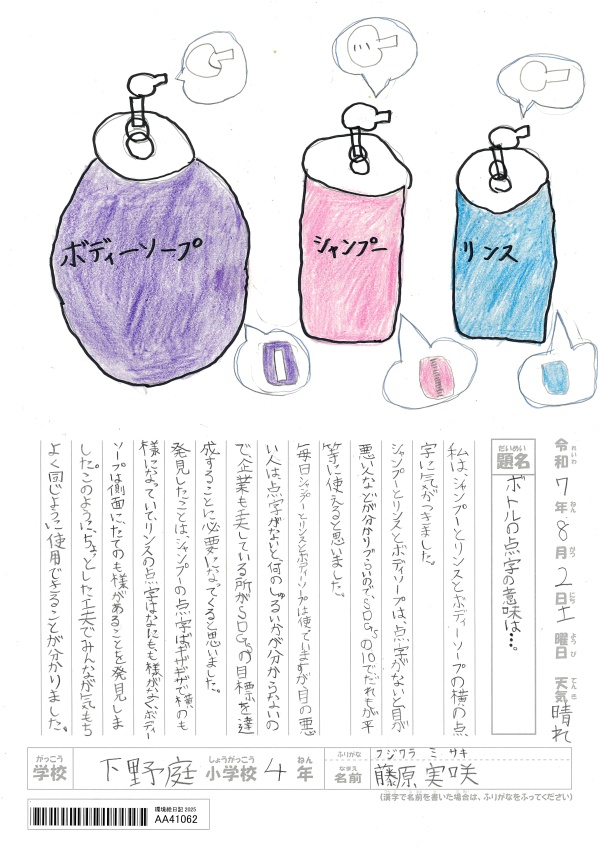 ボディーソープ
シャンプー
リンス
令和7年8月2日土曜日 天気晴れ
れいわ ねん がつ にち ようび てんき
だいめい
題名
ボトルの点字の意味は…。
私は、シャンプーとリンスとボディーソープの横の点
字に気がつきました。
シャンプーとリンスとボディソープは、点字がないと目が
悪い人などが分かりづらいので、SDGsの10でだれもが平
等に使えると思いました。
毎日シャンプーとリンスとボディソープは使っていますが目の悪
い人は点字がないと何のしゅるいかが分からないの
で企業も工夫している所がSDGsの目標を達
成することに必要になってくると思いました。
発見したことは、シャンプーの点字はギザギザで横のも
様になっていて、リンスの点字はなにもも様がなく、ボディー
ソープは側面にたてのも様があることを発見しま
した。このように、ちょっとした工夫でみんなが気もち
よく同じように使用できることが分かりました。
がっこう
学校
下野庭
しょうがっこう
小学校
4
ねん
年
ふりがな
フジワラ ミサキ
なまえ
名前
藤原実咲
(漢字で名前を書いた場合は、ふりがなをふってください)
環境絵日記 2025
AA41062